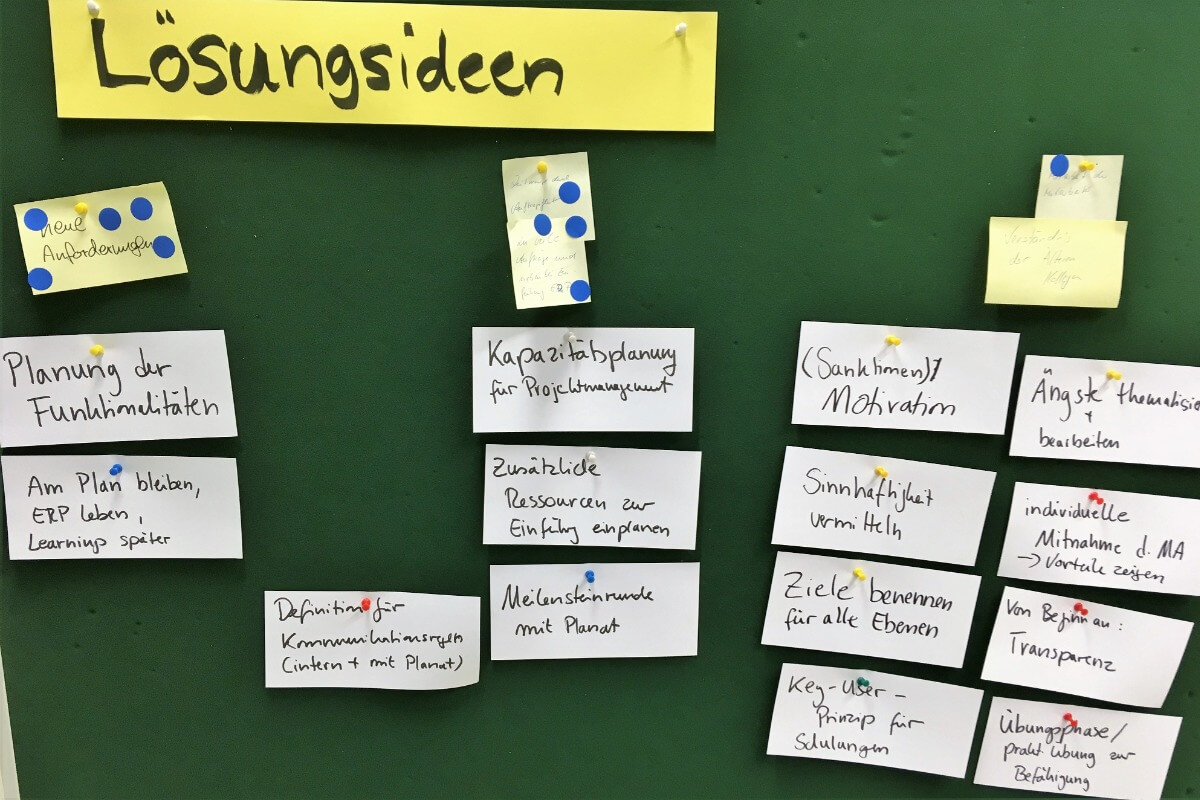 Lösungsideen
neue
Anforderungen
Planung der
Funktionalitäten
Am Plan bleiben,
ERP leben,
Learnings später
Definition für
Kommunikationsregeln
(intern + mit Planat)
Kapazitätsplanung
für Projektmanagement
Zusätzliche
Ressourcen zur
Einführg einplanen
Meilensteinrunde
mit Planat
Verständnis
der älteren
Kollegen
(Sanktionen)/
Motivation
Sinnhaftigkeit
vermitteln
Ziele benennen
für alle Ebenen
Key-User-
Prinzip für
Schulungen
Ängste thematisie
+
bearbeiten
individuelle
Mitnahme d. MA
→ Vorteile zeigen
Von Beginn an:
Transparenz
Übungsphase/
prakt Übung zur
Befähigung